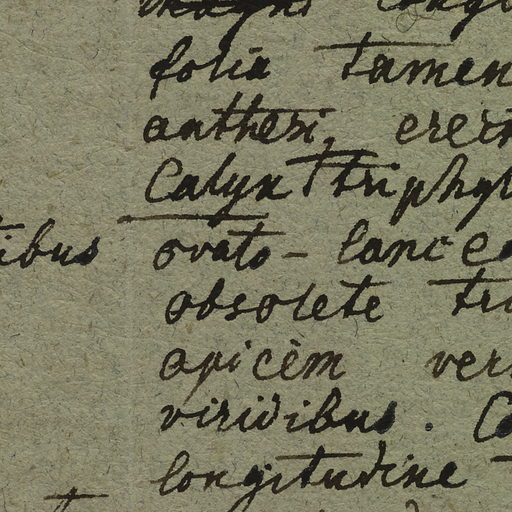 folia tamen
antheri, erect
Calyx triphyl
tibus ovato-lancea
obsolete tri
apicèm ver
viridibus. Co
longitudine